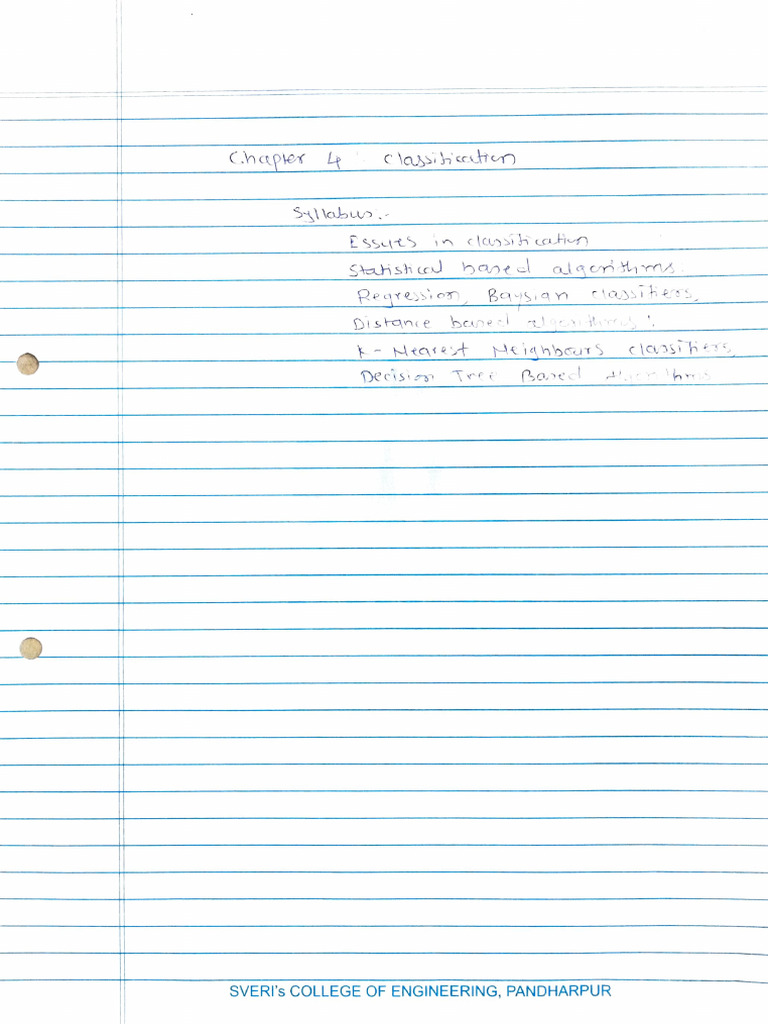 Chapter 4 : Classification
Syllabus:-
Essues in classification
Statistical based algorithms.
Regression, Baysian classifiers,
Distance based algorithms :
K - Nearest Neighbours classifiers,
Decision Tree Based Algorithms
SVERI's COLLEGE OF ENGINEERING, PANDHARPUR